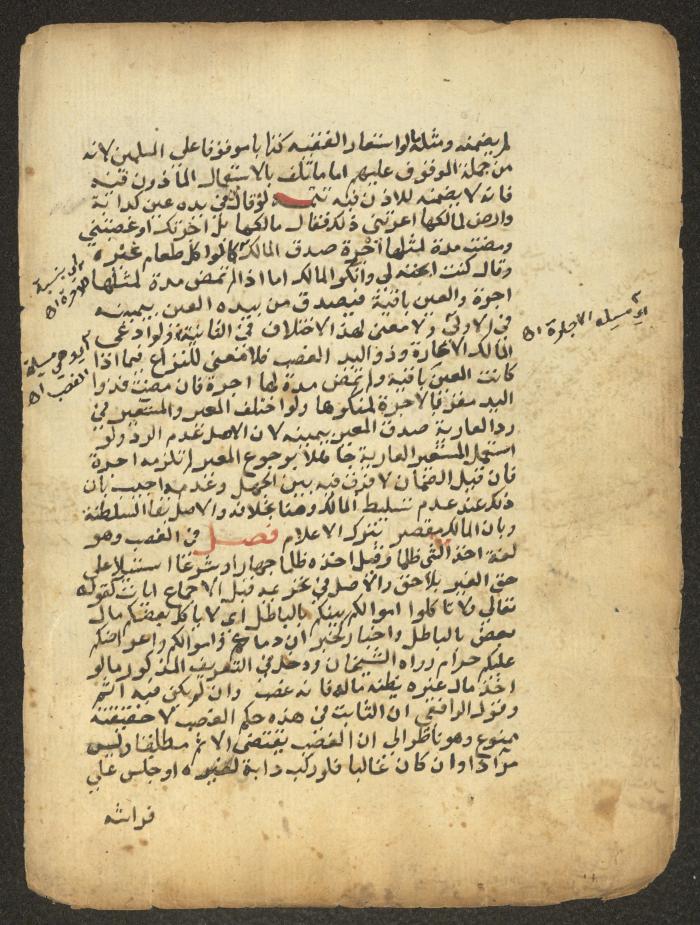 لم يضمنه ومثله ما لو استعار الفقيه كتابا موقوفا على المسلمين لانه
من جملة الموقوف عليهم اما ما تلف بالاستعمال الماذون فيه
فانه لا يضمنه للاذن فيه تتمه لو قال من في يده عين كدابة
وارض لمالكها اعرتني ذلك فقال مالكها بل اجرتك او غصبتني
ومضت مدة لمثلها اجرة صدق المالك كما لو اكل طعام غيره
وقال كنت ابحته لي وانكر المالك اما اذا لم تمض مدة لمثلها
اجرة والعين باقية فيصدق من بيده العين بيمينه
في الاولى ولا معنى لهذا الاختلاف في الثانية ولو ادعى
المالك الاعارة وذو اليد الغصب فلا معنى للنزاع فيما اذا
كانت العين باقية ولم تمض مدة لها اجرة فان مضت فذوا
اليد مقر بالاجرة لمنكرها ولو اختلف المعير والمستعير في
رد العارية صدق المعير بيمينه لان الاصل عدم الرد ولو
استعمل المستعير العارية جاهلا برجوع المعير لم تلزمه اجرة
فان قيل الضمان لا فرق فيه بين الجهل وعدمه اجيب بان
ذلك عند عدم تسليط المالك وهنا بخلافه والاصل بقا السلطنة
وبان المالك مقصر بترك الاعلام فصل في الغصب وهو
لغة اخذ الشي ظلما وقيل اخذه ظلما جهارا وشرعا استيلا على
حق الغير بلا حق والاصل في تحريمه قبل الاجماع ايات كقوله
تعالى ولا تاكلوا اموالكم بينكم بالباطل اي لا ياكل بعضكم مال
بعض بالباطل واخبار كخبر ان دماءكم واموالكم واعراضكم
عليكم حرام رواه الشيخان ودخل في التعريف المذكور ما لو
اخذ مال غيره يظنه ماله فانه غصب وان لم يكن فيه اثم
وقول الرافعي ان الثابت في هذه حكم الغصب لا حقيقته
ممنوع وهو ناظر الى ان الغصب يقتضي الاثم مطلقا وليس
مرادا وان كان غالبا فلو ركب دابة لغيره او جلس على
فراشه
اي مسيلة الاجارة
مسيلة
الغصب